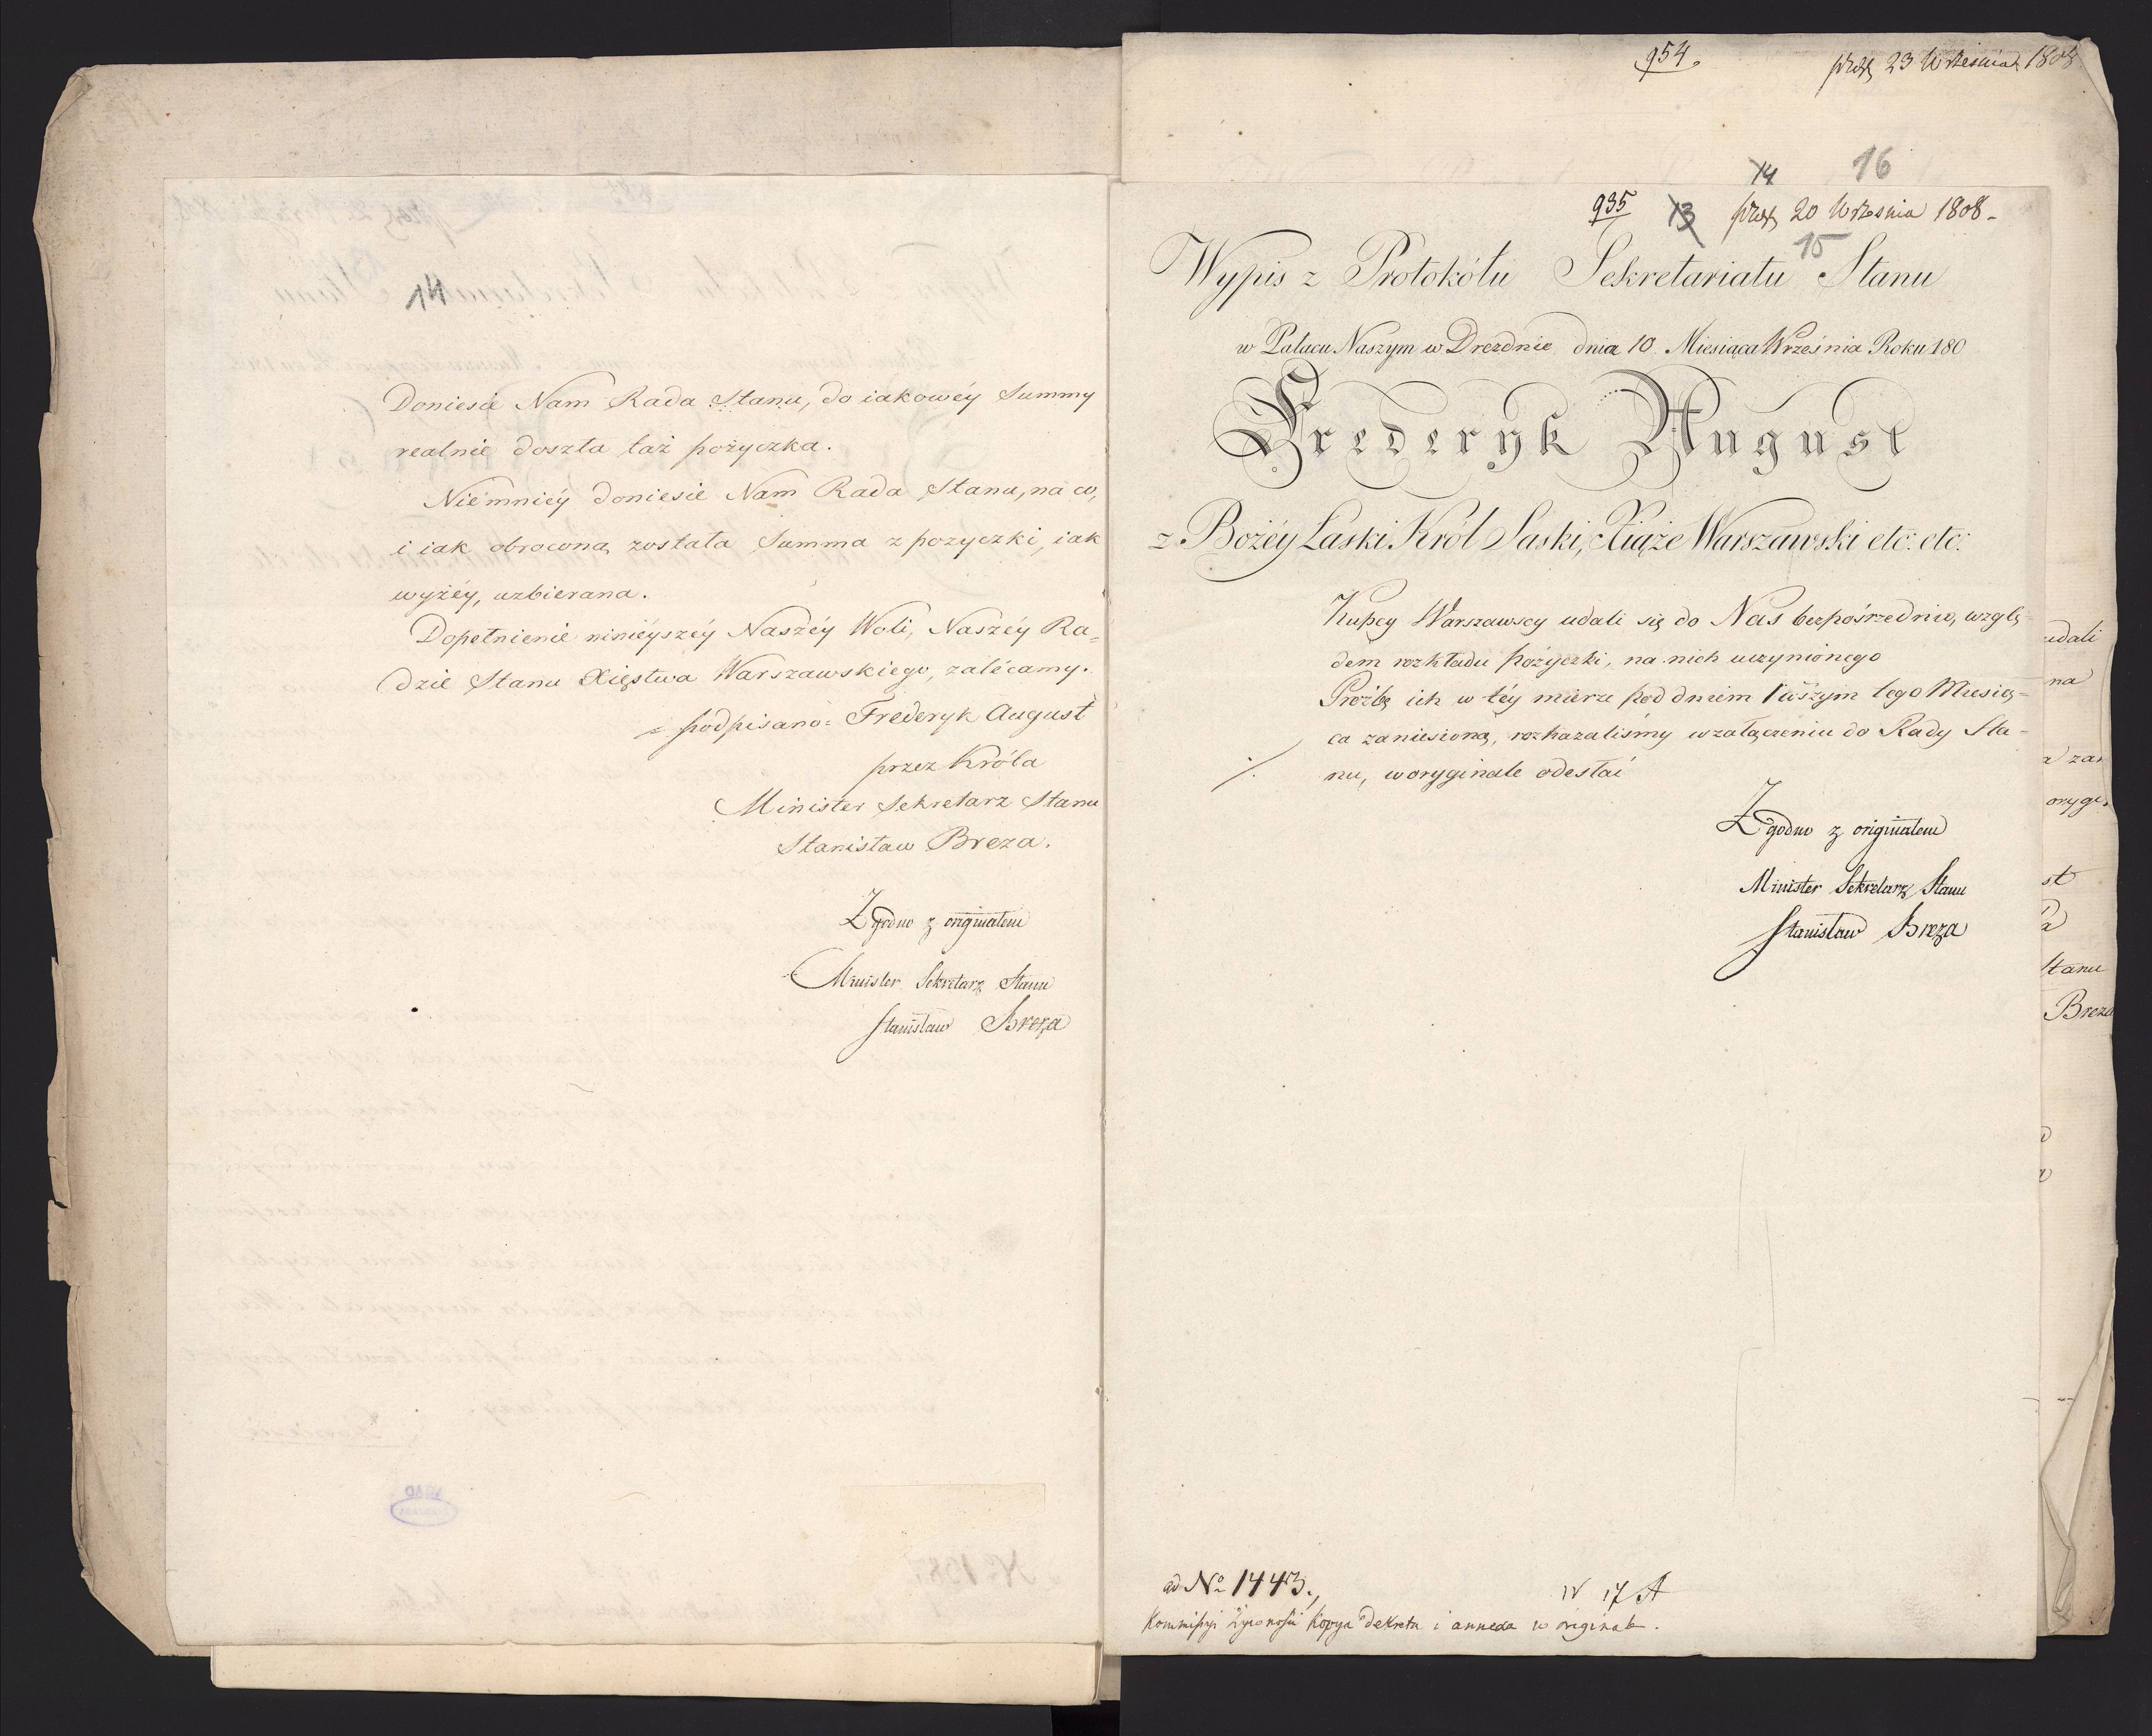 14
Doniesie Nam Rada Stanu, do iakowéy Summy
realnie doszła taż pożyczka.
Niemniéy doniesie Nam Rada Stanu, na co,
i iak obrocona, została Summa z pozyczki, iak
wyżéy, uzbierana.
Dopełnienie ninieyszéy Naszéy Woli, Naszéy Ra=
dzie Stanu Xięstwa Warszawskiego, zalécamy.
= podpisano= Frederyk August
przez Króla
Minister Sekretarz Stanu
Stanisław Breza.
Zgodno z originałem
Minister Sekretarz Stanu
Stanisław Breza
954.
23 Września 1808
16
14
935 13 20 Września 1808-
15
Wypis z Protokółu Sekretariatu Stanu
w Pałacu Naszym w Dreźdnie dnia 10 Miesiąca Września Roku 180
Frederyk August
z Bożéy Łaski Król Saski, Xiąże Warszawski etc: etc:
Kupcy Warszawscy udali się do Nas bezpośrzednio, wzglę-
dem rozkładu pożyczki, na nich uczynionego
Proźbę ich w téy mierze pod dniem 1wszym tego Miesią=
ca zaniesioną, rozkazaliśmy w załączeniu do Rady Sta=
nu, w oryginale odesłać
Zgodno z originałem
Minister Sekretarz Stanu
Stanisław Breza
ad No 1443.,
17 A
Kommissyi Żywności Kopya Dekretu i annexa w originale.
udali
na
st
Stanu
Breza